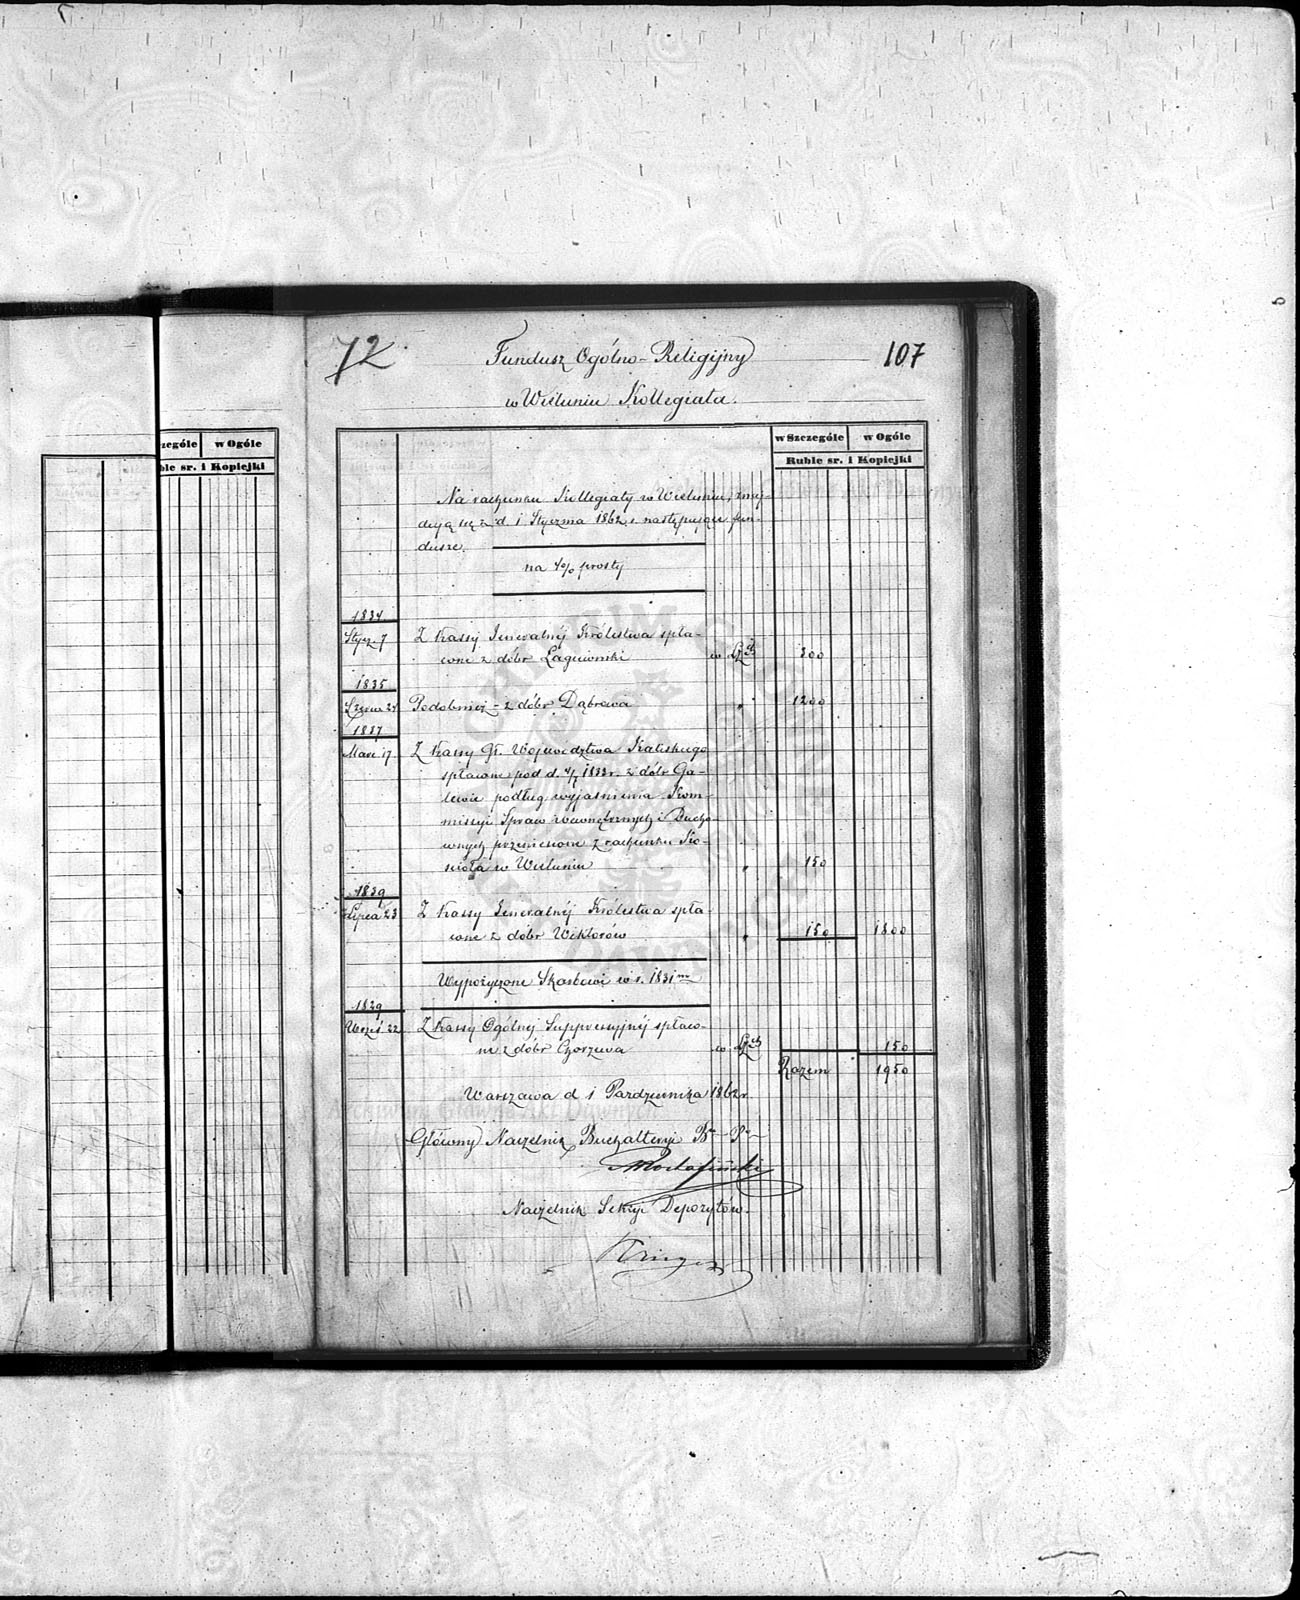 72
107
Fundusz Ogólno-Religijny
w Wieluniu Kollegiata.
zególe w Ogóle
ble sr. i Kopiejki
w Szczególe w Ogóle
Ruble sr. i Kopiejki
Na rachunku Kollegiaty w Wieluniu, znaj-
dują się z d. 1 Stycznia 1862 r. następujące fun-
dusze.
na 4% prosty
1834
Stycz. 7 Z Kassy Jeneralnéj Królestwa spła-
cone z dóbr Łagiewniki w 300
1835
Czerw. 24 Podobnież - z dóbr Dąbrowa " 1200
1837
Marc 17 Z Kassy Gł. Województwa Kaliskiego
spłacone pod d. 1833 r. z dóbr Ga-
lewic podług wyjaśnienia Kom-
missyi Spraw Wewnętrznych i Ducho-
wnych przeniesione z rachunku Ko-
ścioła w Wieluniu " 150
1839
Lipca 23 Z Kassy Jeneralnéj Królestwa spła-
cone z dóbr Wiktorów " 150 1800
Wypożyczone Skarbowi w r. 1831 m
1829
Wrześ 22 Z Kassy Ogólnéj Suppressyjnéj spłaco-
ne z dóbr Gorzewa w 150
Razem 1950
Warszawa d 1 Pazdziernika 1862 r.
Główny Naczelnik Buchalteryi
Naczelnik Sekcyi Depozytów.
Archiwum Główne Akt Dawnych